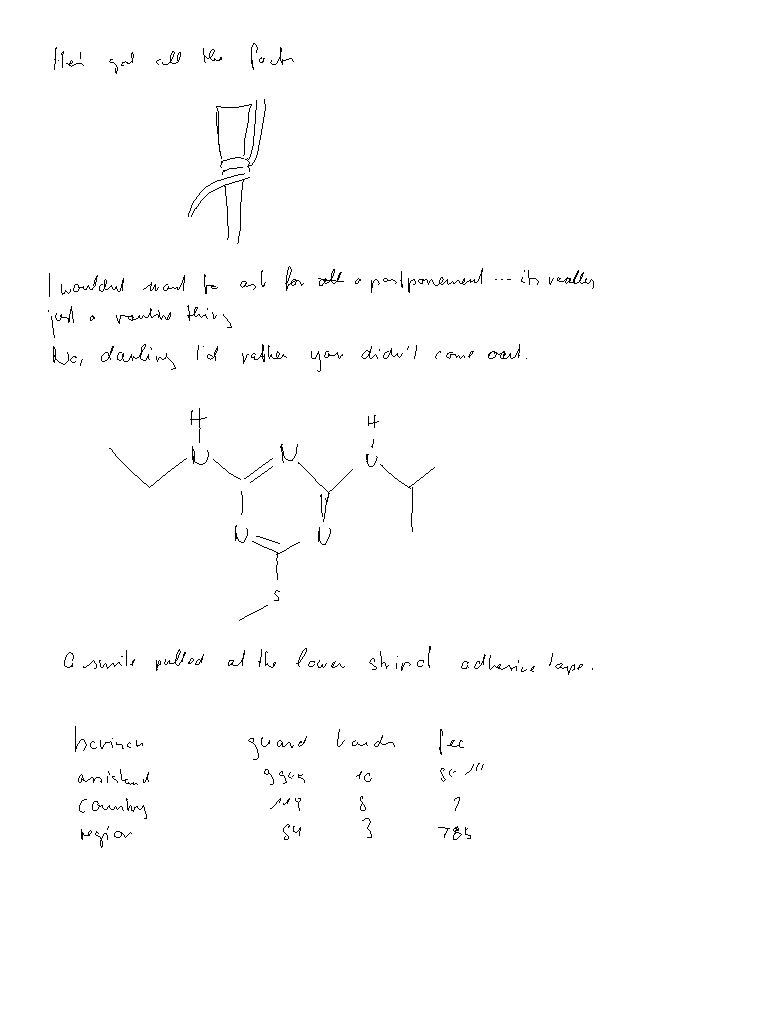 He's got all the facts
I wouldn't want to ask for all a postponement ... it's really
just a routine thing
No, darling I'd rather you didn't come out.
H
H
N
N
N
N
N
S
A smile pulled at the lower strip of adhesive tape.
guard bands fee
assistant 10
country 119 8 ?
region 84 3 785